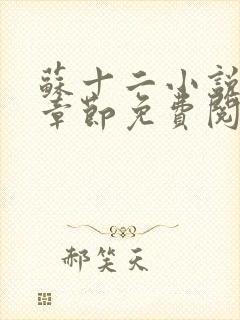 蘇十二小說
章節免費閱
郝笑天